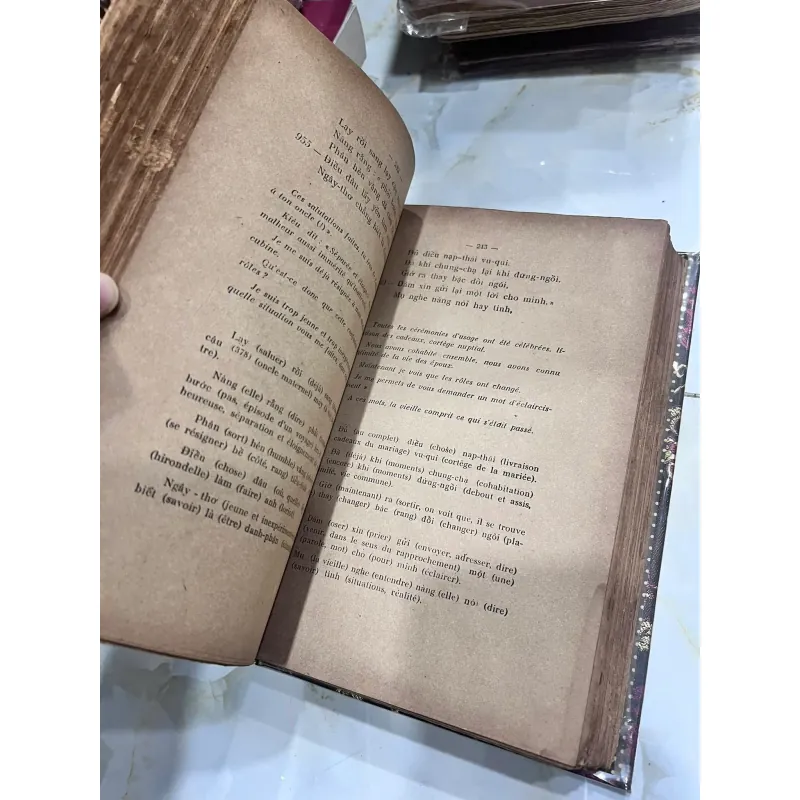 Lạy rồi sang lạy
Nàng rằng : "
Phận hèn vâng đã
955 — Điều đâu lấy yến
Ngây-thơ chẳng biết
Ces salutations faites, tu
à ton oncle (1) »
Kiều dit : « Séparée et
malheur aussi immérité
Je me suis déjà résignée
cubine.
Qu'est-ce donc que cette
rôles ?
Je suis trop jeune et trop
quelle situation vous me faites
Lạy (saluer) rồi (déjà)
cậu (378) (oncle maternel) mày
tre).
Nàng (elle) rằng (dire) phải
bước (pas, épisode d'un voyage)
heureuse, séparation et éloignement
Phận (sort) hèn (humble) vâng
(se résigner) bề (côté, rang)
Điều (chose) đâu (où, quelle)
(hirondelle) làm (faire) anh
Ngây - thơ (jeune et inexpérimentée)
biết (savoir) là (être) danh-phận
— 243 —
Đủ điều nạp-thái vu-qui.
Đã khi chung-chạ lại khi đứng-ngồi.
Giờ ra thay bậc đổi ngôi,
Dám xin gửi lại một lời cho minh. »
Mụ nghe nàng nói hay tình,
Toutes les cérémonies d'usage ont été célébrées. li-
vraison des cadeaux, cortège nuptial.
Nous avons cohabité ensemble, nous avons connu
l'intimité de la vie des époux.
Maintenant je vois que les rôles ont changé.
Je me permets de vous demander un mot d'éclaircis-
sement »
A ces mots, la vieille comprit ce qui s'était passé.
Đủ (au complet) điều (chose) nạp-thái (livraison
cadeaux du mariage) vu-qui (cortège de la mariée).
Đã (déjà) khi (moments) chung-chạ (cohabitation)
(encore) khi (moments) đứng-ngồi (debout et assis,
intimité, vie commune).
Giờ (maintenant) ra (sortir, on voit que, il se trouve
thay (changer) bậc (rang) đổi (changer) ngôi (pla-
Dám (oser) xin (prier) gửi (envoyer, adresser, dire)
(venir, dans le sens du rapprochement) một (une)
(parole, mot) cho (pour) minh (éclaircir).
Mụ (la vieille) nghe (entendre) nàng (elle) nói (dire)
(savoir) tình (situations, réalité).